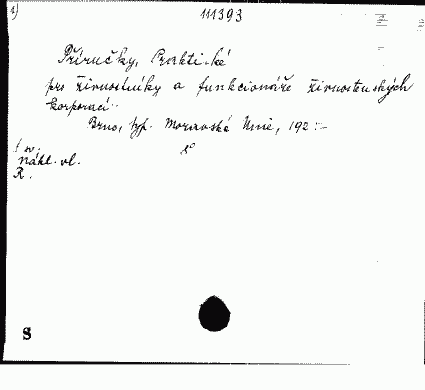 111393
Příručky, Praktické
pro živnostníky a funkcionáře živnostenských
korporací.
Brno, typ. Moravská Unie, 192 :-
8°
1 sv.
nákl. vl.
R.
S